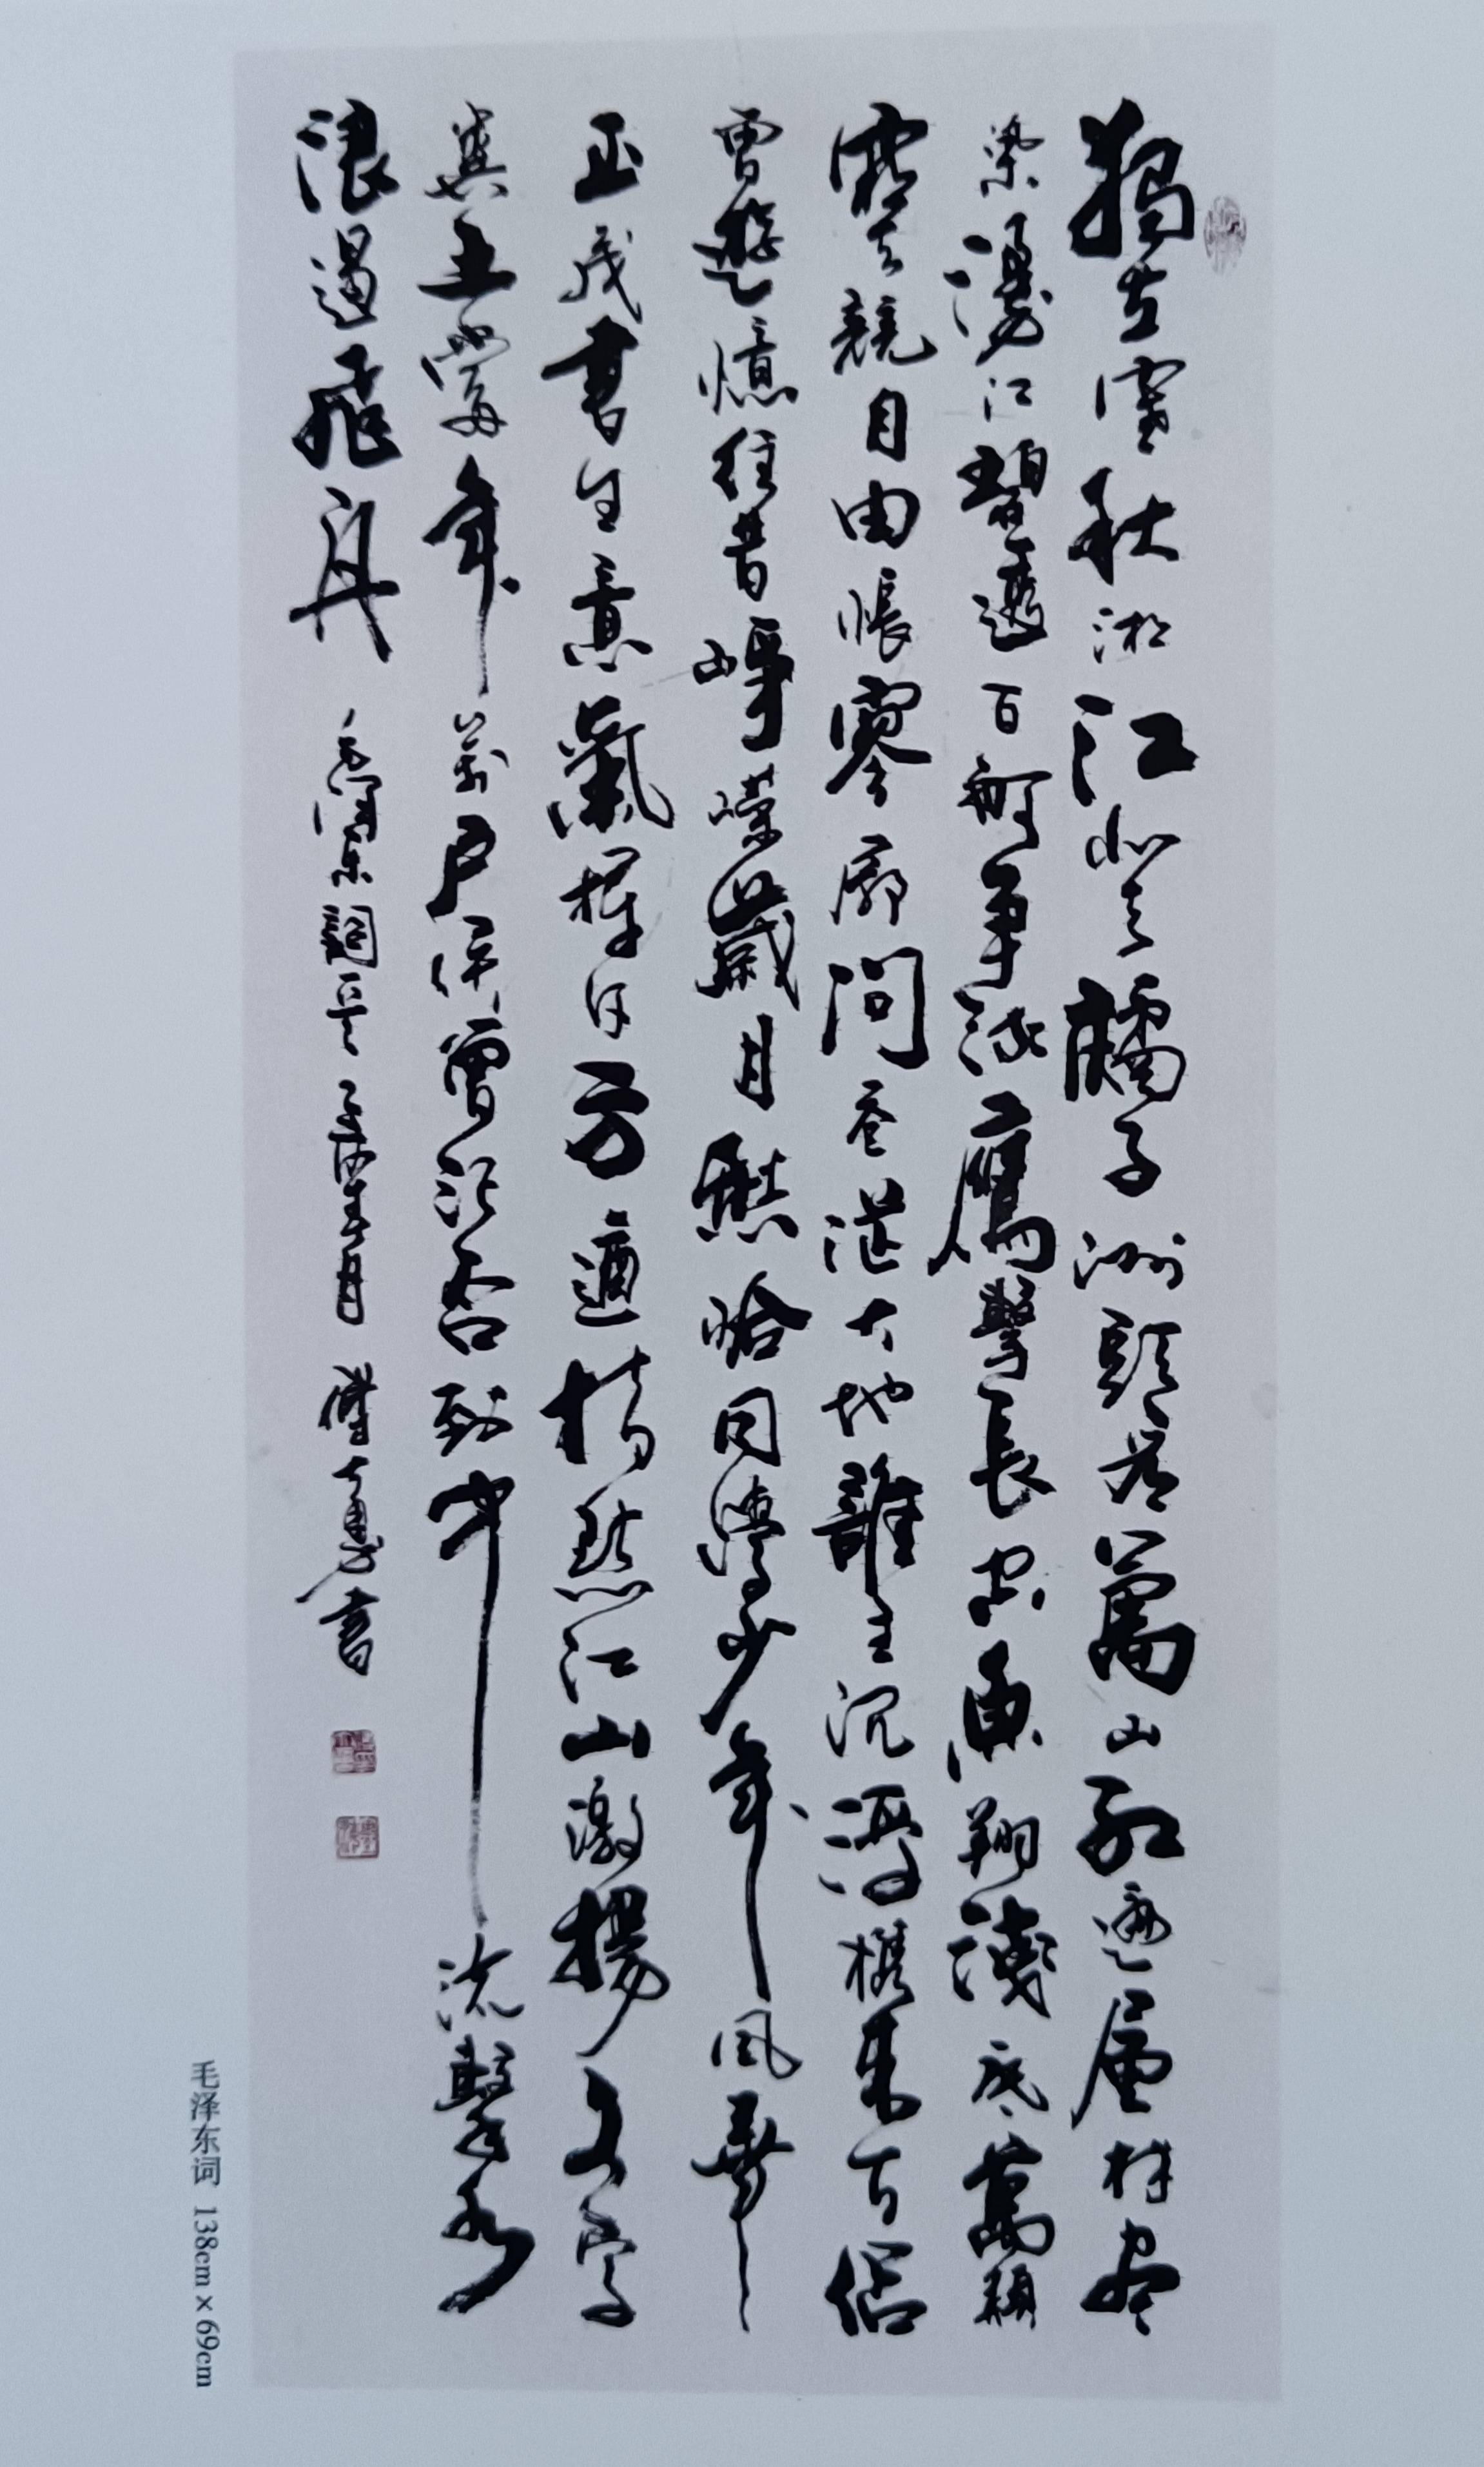 獨立寒秋湘江北去橘子洲頭看萬山紅遍層林盡
染漫江碧透百舸爭流鷹擊長空魚翔淺底萬類
霜天競自由悵寥廓問蒼茫大地誰主沉浮攜來百侶
曾遊憶往昔崢嶸歲月稠恰同學少年風華
正茂書生意氣揮斥方遒指點江山激揚文字
糞土當年萬戶侯曾記否到中流擊水
浪遏飛舟
毛澤東詞一首 月 書
毛泽东词 138cm×69cm